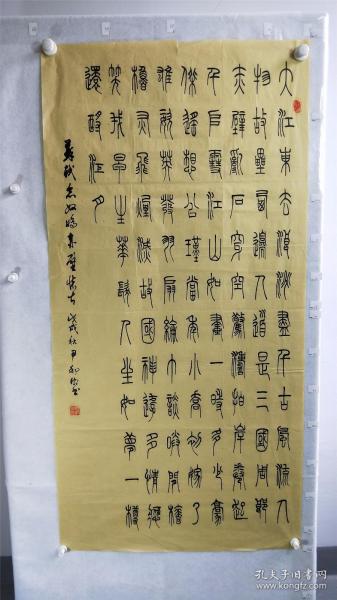 大江東去浪淘盡千古風流人
物故壘西邊人道是三國周郎
赤壁亂石穿空驚濤拍岸卷起
千堆雪江山如畫一時多少豪
傑遙想公瑾當年小喬初嫁了
雄姿英發羽扇綸巾談笑間檣
櫓灰飛煙滅故國神遊多情應
笑我早生華髮人生如夢一樽
還酹江月
蘇軾念奴嬌赤壁懷古 戊戌秋尹和書
孔夫子旧书网
www.kongfz.com